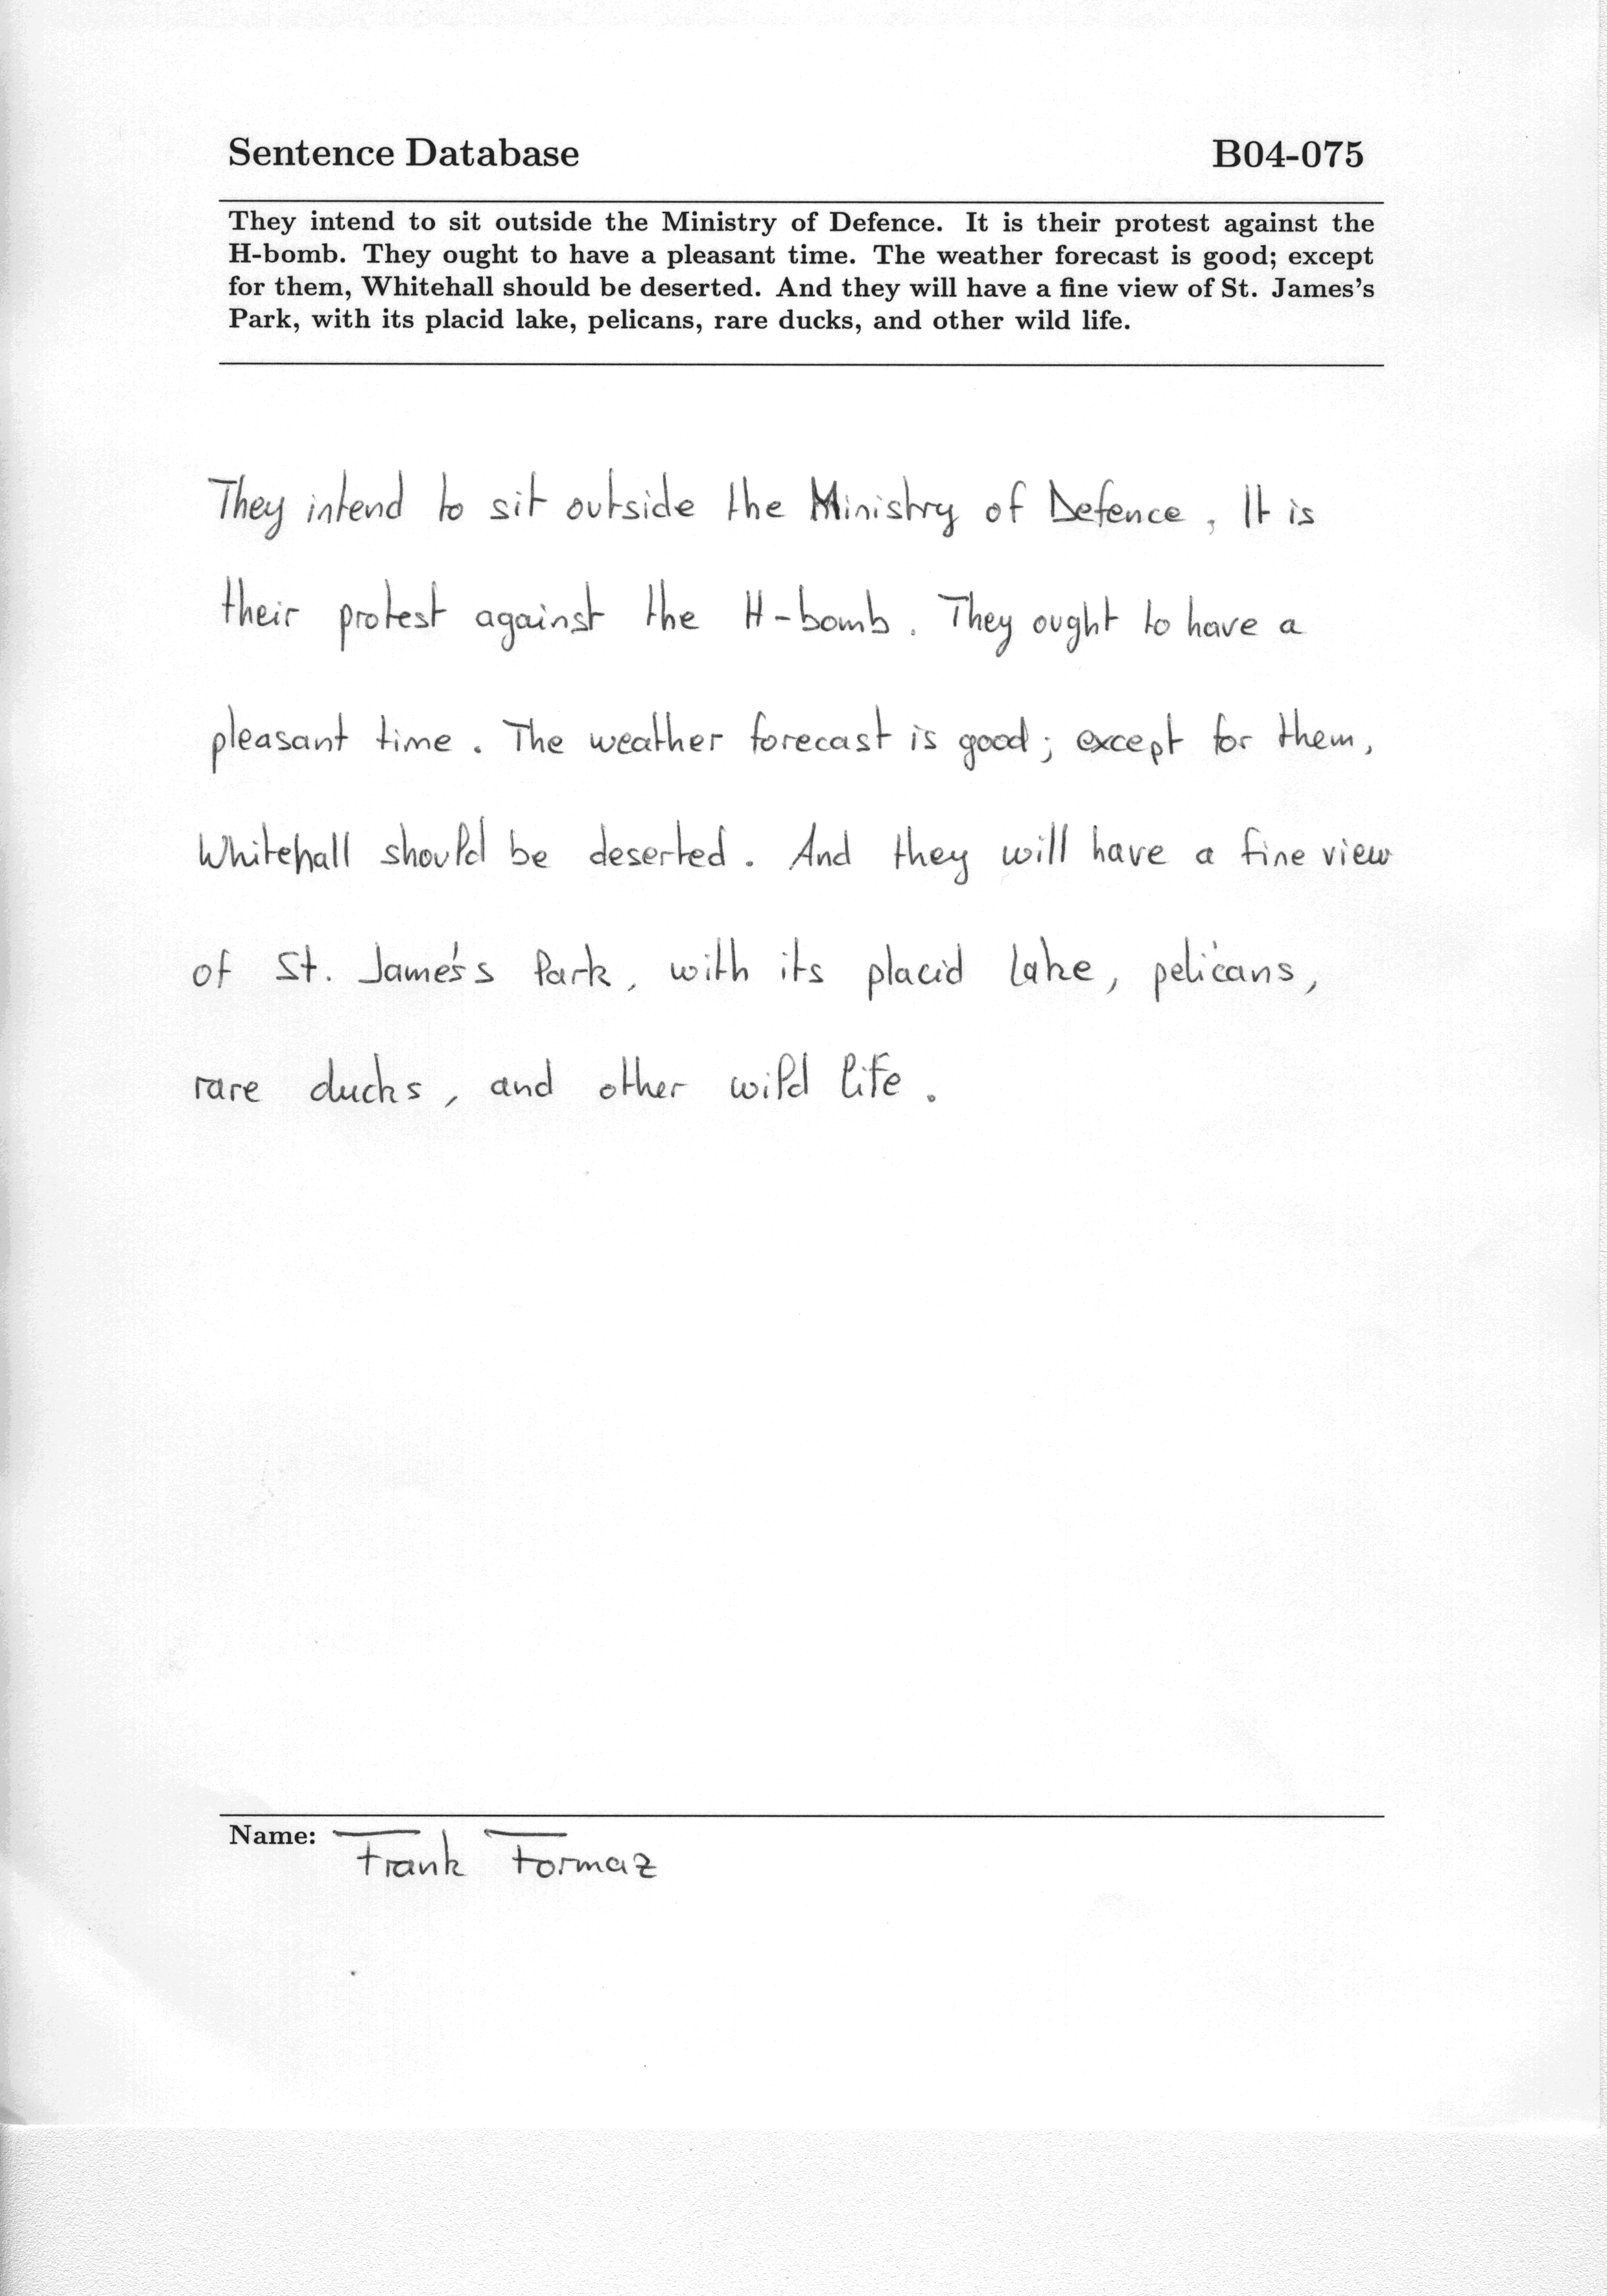 Sentence Database B04-075
They intend to sit outside the Ministry of Defence. It is their protest against the
H-bomb. They ought to have a pleasant time. The weather forecast is good; except
for them, Whitehall should be deserted. And they will have a fine view of St. James's
Park, with its placid lake, pelicans, rare ducks, and other wild life.
They intend to sit outside the Ministry of Defence. It is
their protest against the H-bomb. They ought to have a
pleasant time. The weather forecast is good; except for them,
Whitehall should be deserted. And they will have a fine view
of St. James's Park, with its placid lake, pelicans,
rare ducks, and other wild life.
Name: Frank Formaz